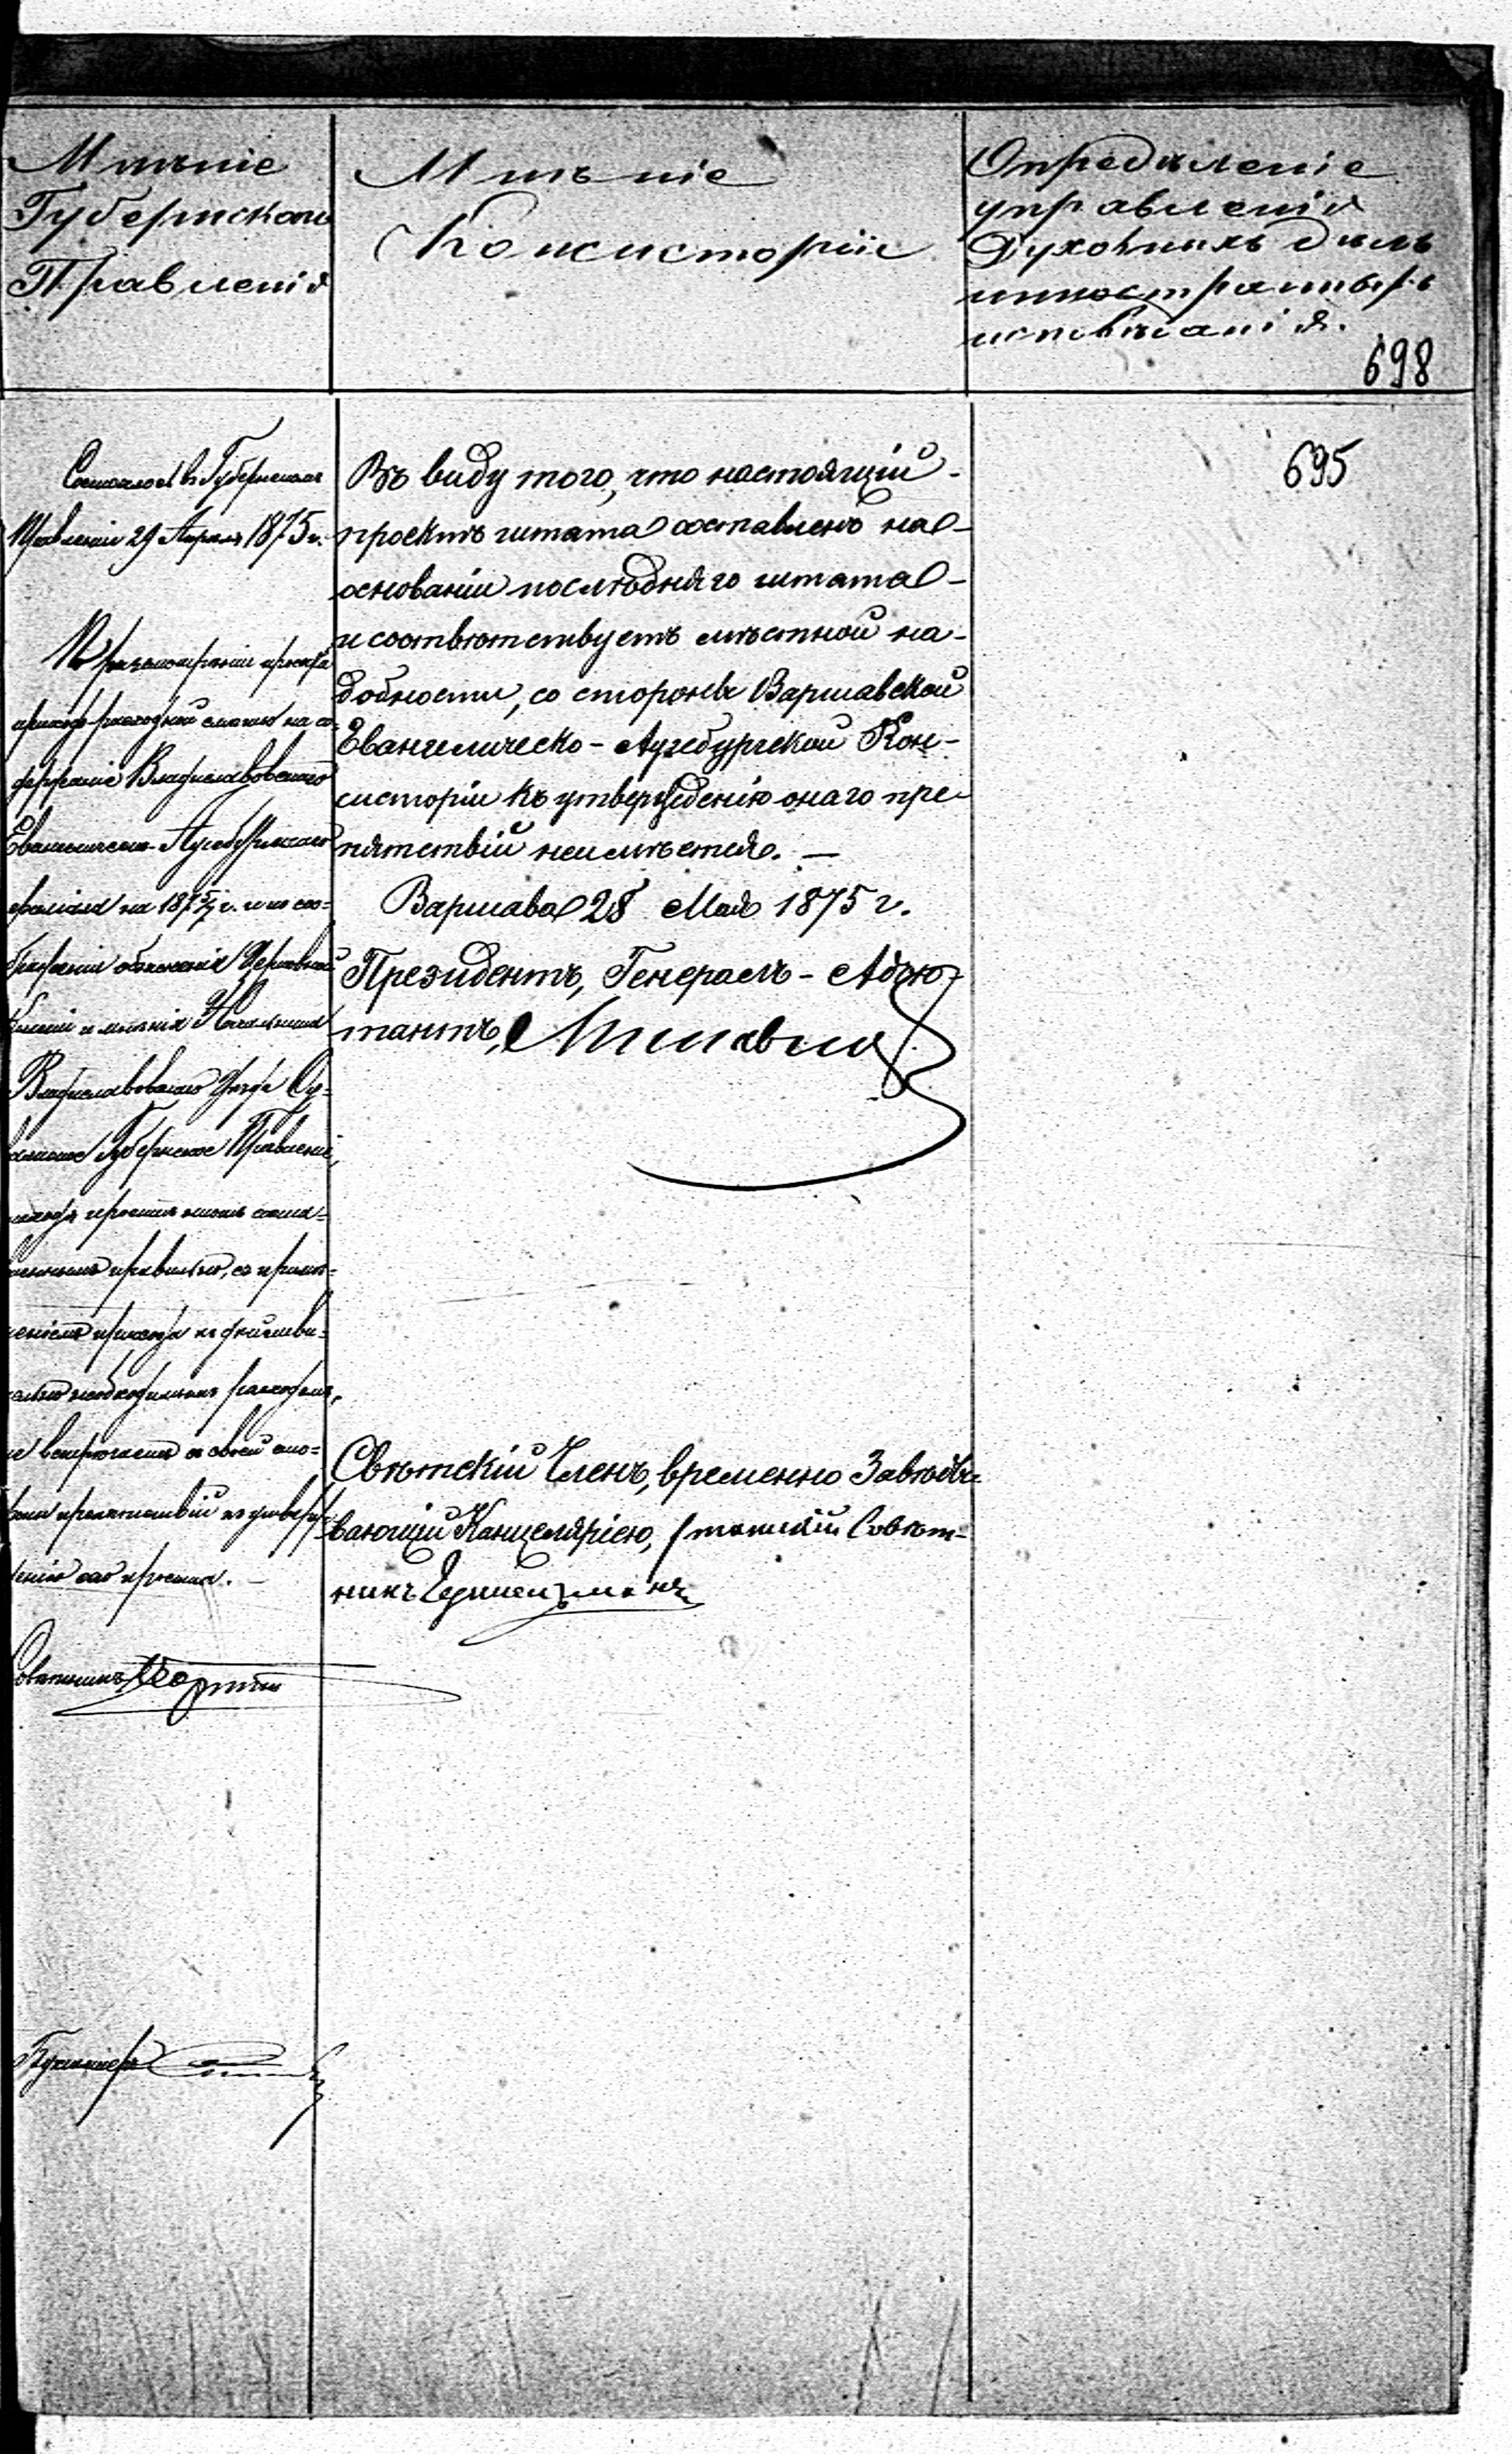 Мнѣніе
Губернскаго
Правленія
Мнѣніе
Консисторіи
Опредѣленіе
управленія
Духовныхъ дѣлъ
иностранныхъ
исповѣданій.
698
695
Состоялось въ Губернскомъ
Правленіи 29 Апрѣля 1875 г.
По разсмотрѣніи проекта
приходо-расходной смѣты на со-
держаніе Владиславовскаго
Евангелическо-Аугсбургскаго
филіала на 1875/7 г. и по соо-
браженіи объясненія Церковной
Коллегіи и мнѣнія Начальника
Владиславовскаго Уѣзда Су-
валкское Губернское Правленіе,
находя проектъ этотъ соста-
вленнымъ правильно, съ примѣ-
неніемъ прихода къ дѣйстви-
тельно необходимымъ расходамъ,
не встрѣчаетъ съ своей сто-
роны препятствій къ утверж-
денію сего проекта. —
Совѣтникъ
Бухгалтеръ
Въ виду того, что настоящій
проектъ штата составленъ на
основаніи послѣдняго штата
и соотвѣтствуетъ мѣстной на-
добности, со стороны Варшавской
Евангелическо-Аугсбургской Кон-
систоріи къ утвержденію онаго пре-
пятствій неимѣется. —
Варшава 28 Мая 1875 г.
Президентъ, Генералъ-Адъю-
тантъ,
Свѣтскій Членъ, временно Завѣды-
вающій Канцеляріею, Статскій Совѣт-
никъ